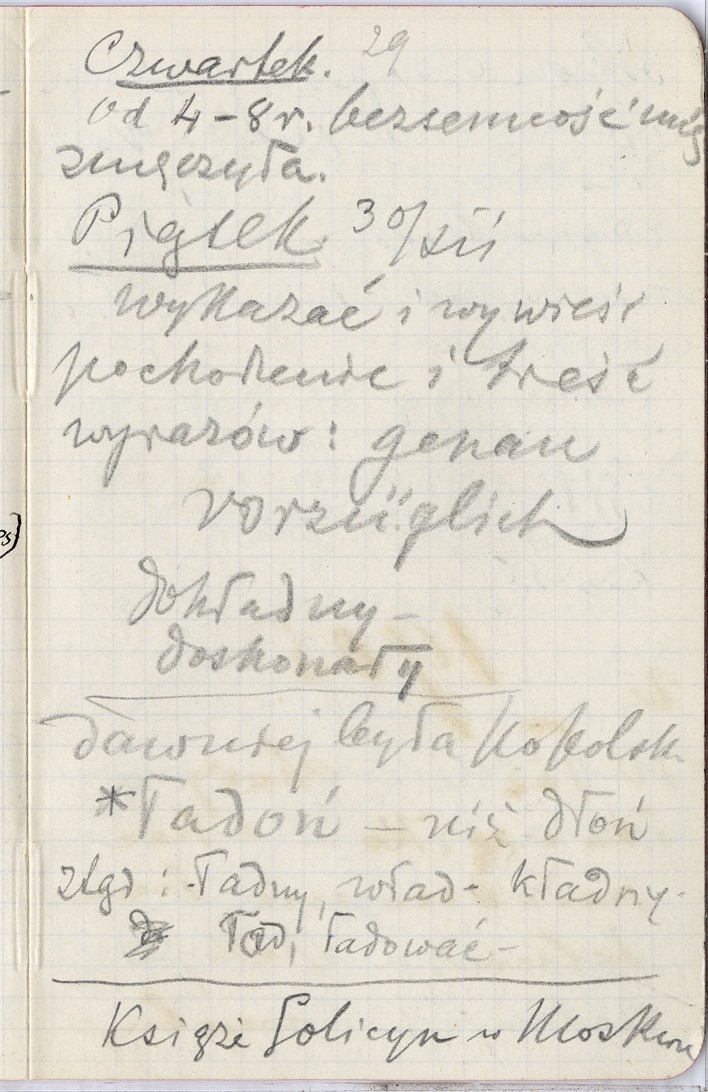 Czwartek. 29
od 4-8 r. bezsenność mię
zmęczyła.
Piątek 30/
wykazać i wywieść
pochodzenie i treść
wyrazów: genau
vorzüglich
dokładny -
doskonały
dawniej była po polsk.
*Ładoń - niż dłoń
ztąd : Ładny, wład- kładny.
Ład, ładować -
Książe Golicyn w Moskwie
ps)